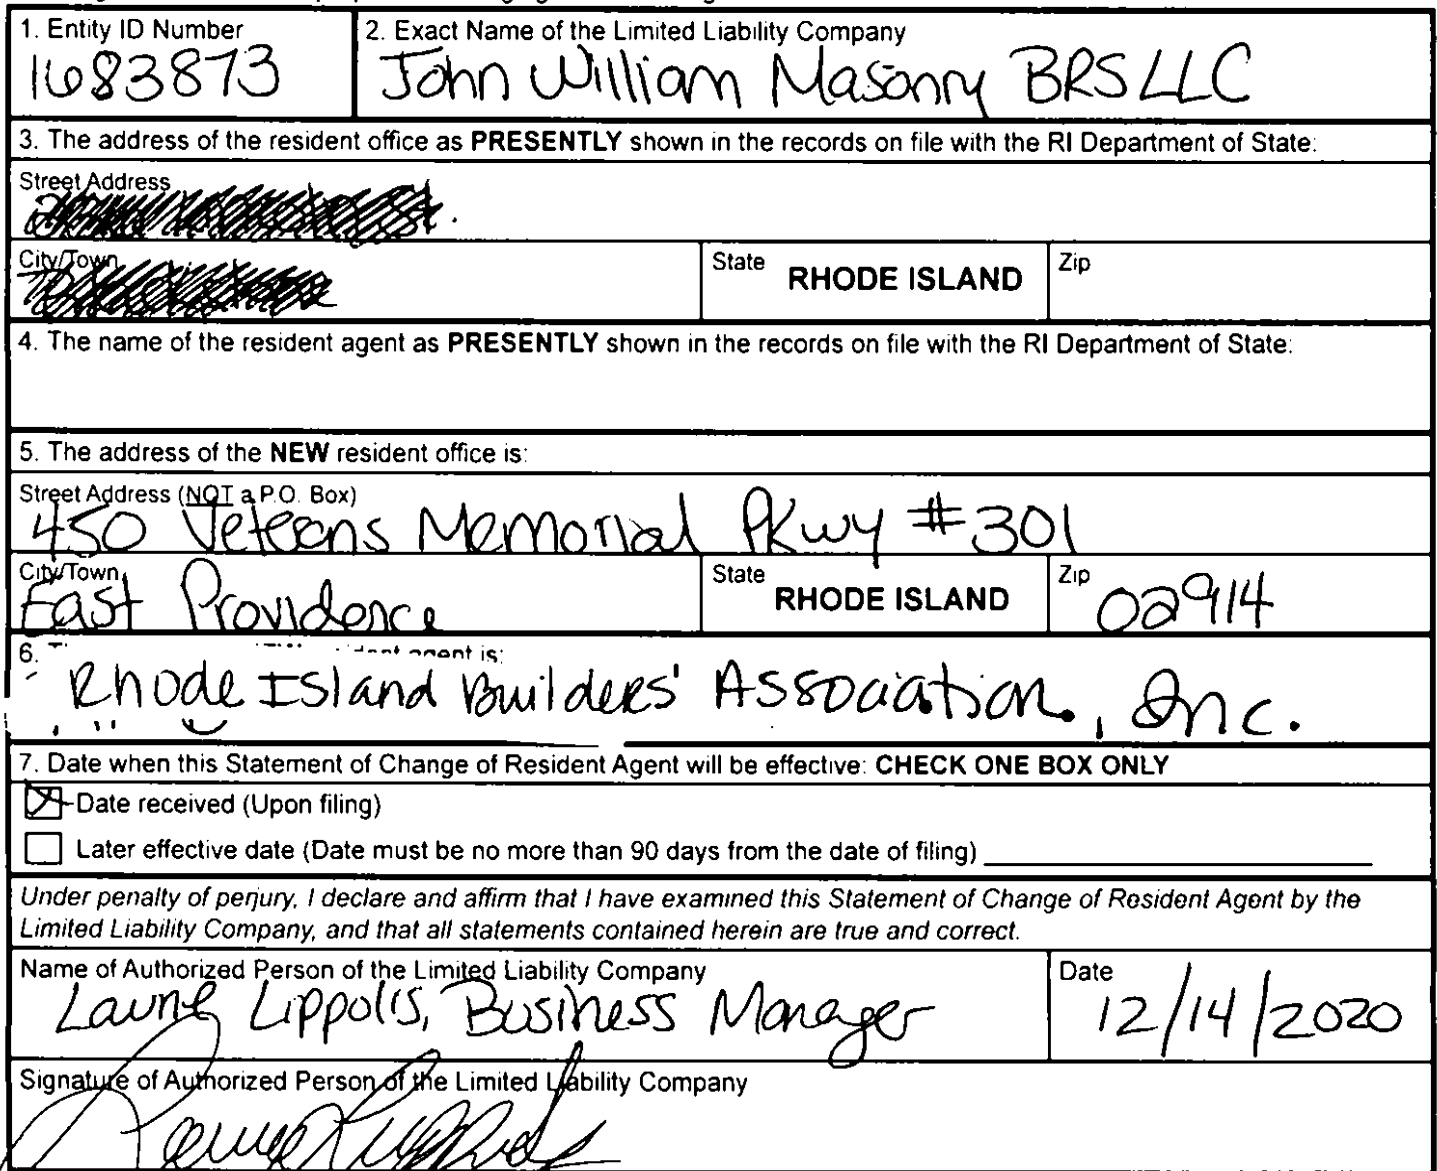 1. Entity ID Number
1683873
2. Exact Name of the Limited Liability Company
John William Masonry BRS LLC
3. The address of the resident office as PRESENTLY shown in the records on file with the RI Department of State:
Street Address
City/Town
State RHODE ISLAND
Zip
4. The name of the resident agent as PRESENTLY shown in the records on file with the RI Department of State:
5. The address of the NEW resident office is:
Street Address (NOT a P.O. Box)
450 Veterans Memorial Pkwy #301
City/Town
East Providence
State RHODE ISLAND
Zip 02914
6. agent is:
Rhode Island Builders' Association, Inc.
7. Date when this Statement of Change of Resident Agent will be effective: CHECK ONE BOX ONLY
Date received (Upon filing)
Later effective date (Date must be no more than 90 days from the date of filing)
Under penalty of perjury, I declare and affirm that I have examined this Statement of Change of Resident Agent by the
Limited Liability Company, and that all statements contained herein are true and correct.
Name of Authorized Person of the Limited Liability Company
Laurie Lippolis, Business Manager
Date
12/14/2020
Signature of Authorized Person of the Limited Liability Company